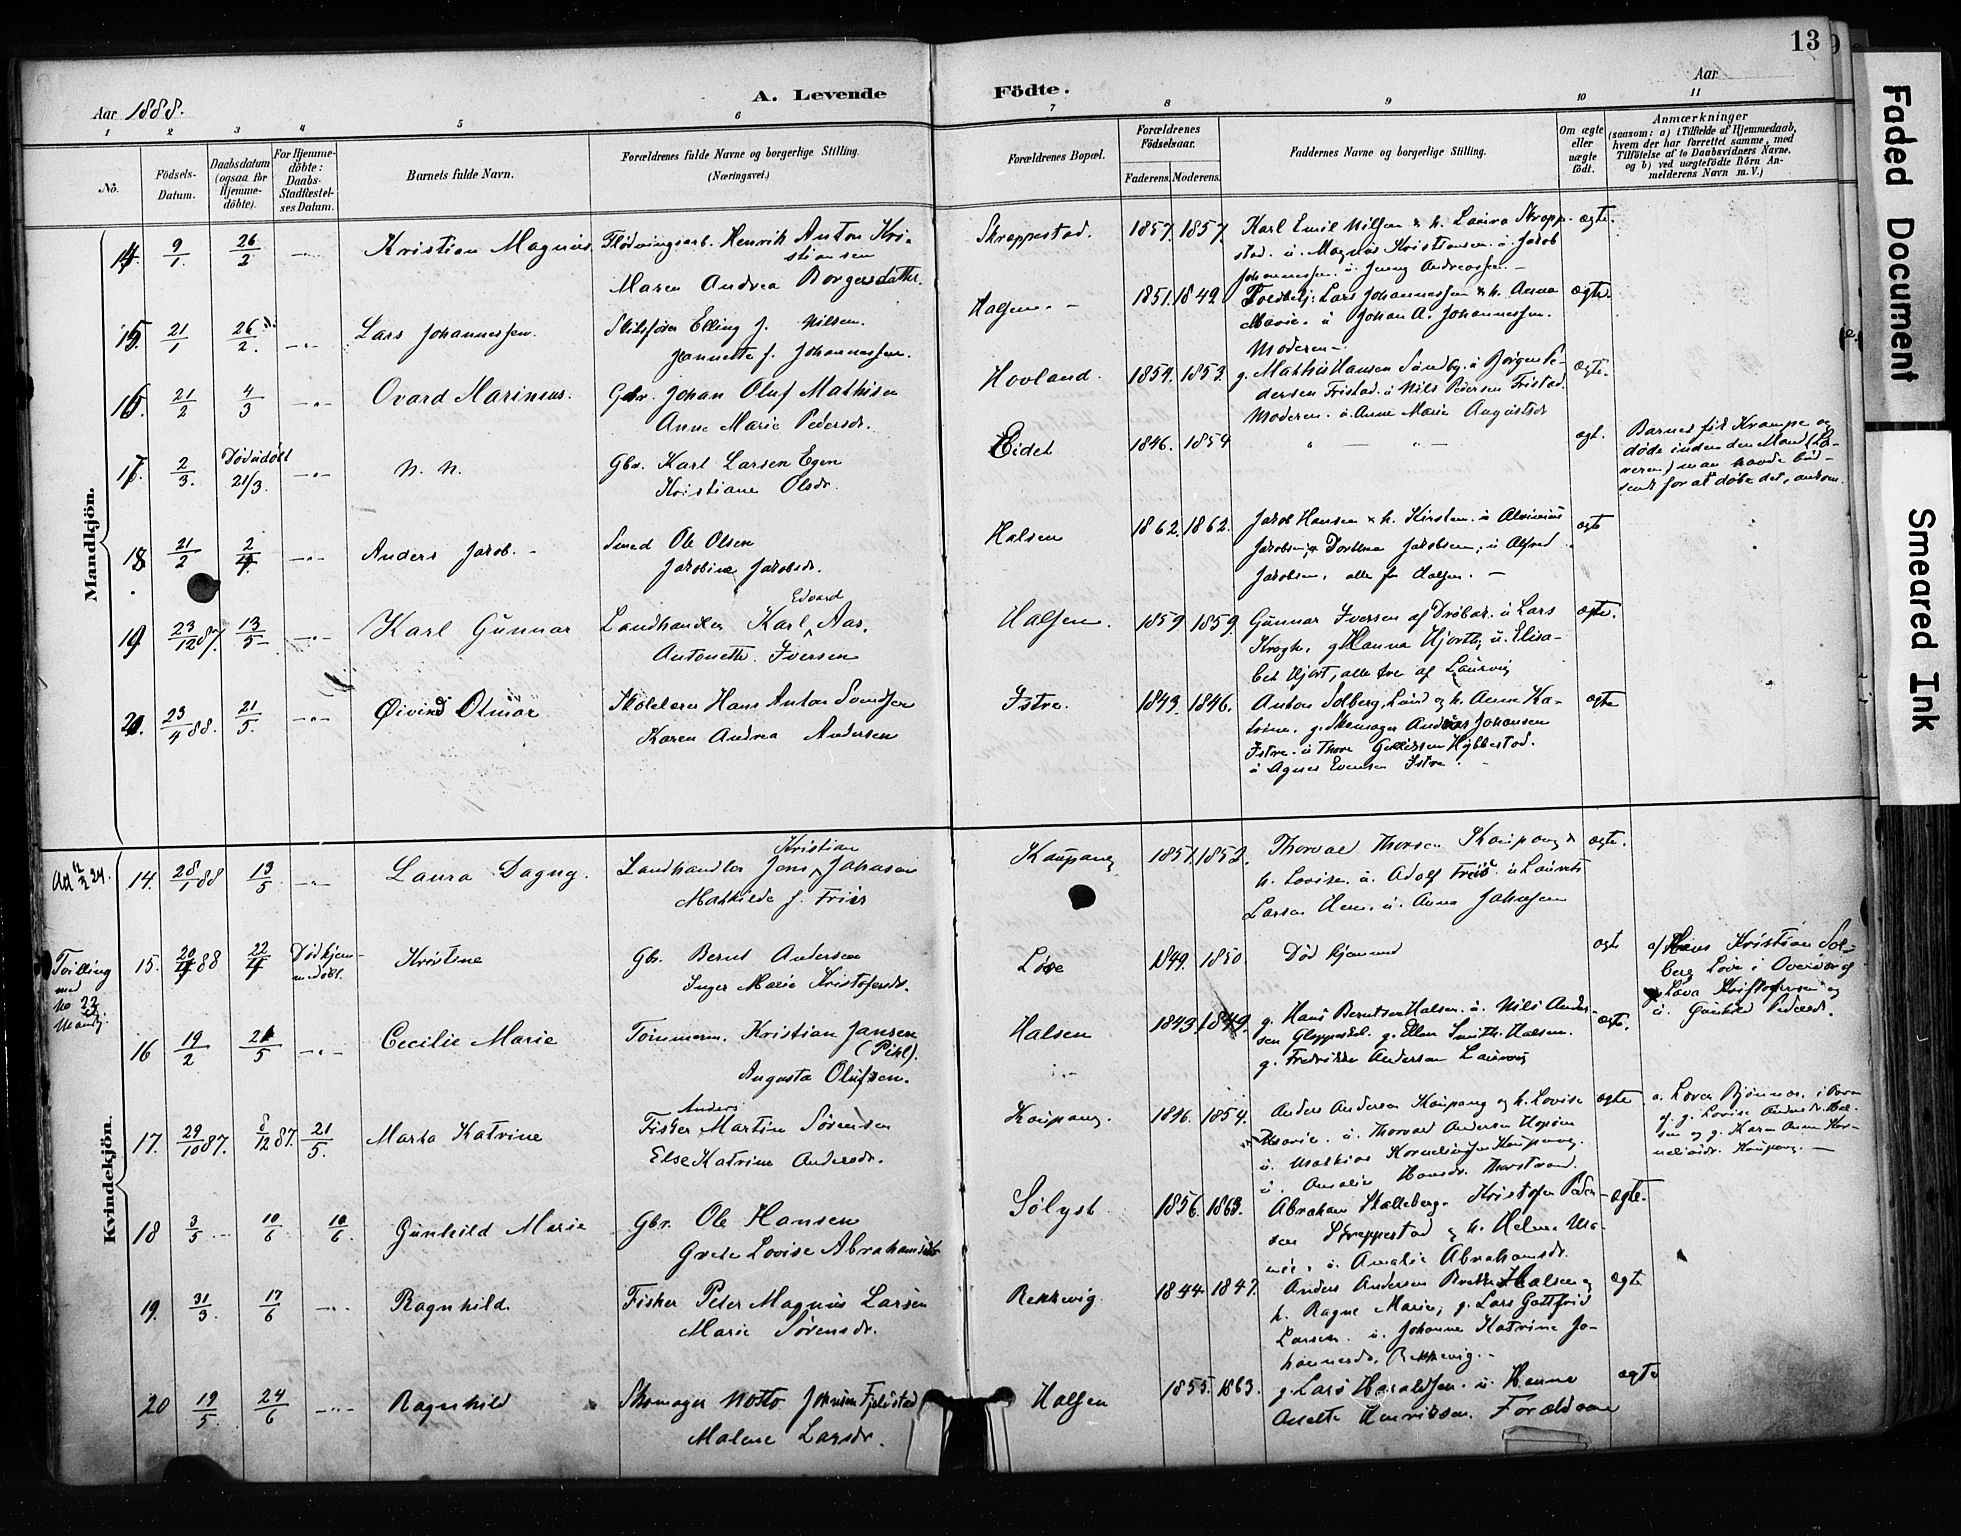 13
Aar 1888.
A. Levende
Födte.
Aar
1 2 3 4 5 6 7 8 9 10 11
No.
Födsels-Datum.
Daabsdatum (ogsaa for Hjemme-döbte).
For Hjemme-döbte: Daabs-Stadfæstel-ses Datum.
Barnets fulde Navn.
Forældrenes fulde Navne og borgerlige Stilling.
(Næringsvei.)
Forældrenes Bopæl.
Forældrenes Födselsaar.
Faderens. Moderens.
Faddernes Navne og borgerlige Stilling.
Om ægte eller uægte födt.
Anmærkninger
(saasom: a) i Tilfælde af Hjemmedaab, hvem der har forrettet samme, med Tilföielse af to Daabsvidners Navne, og b) ved uægtefödte Börn An-melderens Navn m. V.)
Mandkjön.
14. 9/1 26/2 Kristian Magnus. Henrik Anton Kri-
stiansen
Maren Andrea Borgersdatter.
Skreppestad. 1857. 1857. Karl Emil Nilsen & h. Laura Skrepp-
stad. u. Magnus Kristiansen. u. Jakob
Johannessen. u. Jenny Andreassen.
ægte.
15. 21/1 26/2. Lars Johannessen. Elling J. Nilsen.
Jeannette f. Johannessen.
Halsen. 1851. 1849. Lars Johannessen & h. Anna
Marie. u. Johan A. Johannessen.
Moderen
ægte.
16. 21/2 4/3 Ovard Marinius. Gbr. Johan Oluf Mathisen
Anne Marie Pedersdr.
Hovland. 1854. 1853. g. Mathis Hansen Sundby. u. Börgen Pe-
dersen Fristad. u. Nils Pedersen Fristad.
Moderen. u. Anne Marie Augustsdr
ægte.
17. 2/3. Dødsdøbt 21/3. N. N. Gbr. Karl Larsen Egen
Kristiane Olsdr.
Eidet 1846. 1854 ægt.
Barnet fik Krampe og
døde inden den Mand (Læ-
reren) man havde bud-
sendt for at døbe det, ankom.
18. 21/2 2/4. Anders Jakob. Smed Ole Olsen
Jakobine Jakobsdr.
Halsen 1862. 1862. Jakob Hansen & h. Kirsten. u. Alvinius
Jakobsen, & Dorthea Jakobsen, u. Alfred
Jakobsen, alle fra Halsen.
ægte
19. 23/12 87. 13/5 Karl Gunnar Landhandler Karl Edvard Aas.
Antonette Iversen
Halsen. 1859. 1859. Gunnar Iversen af Drøbak. u. Lars
Krogh, g. Hanna Hjorth, u. Elisa-
bet Hjort, alle tre af Laurvig
ægte.
20. 23/4 88. 21/5. Øivind Otmar Hans Anton Svendsen
Karen Andrea Andersen
Istre. 1843. 1846. Anton Solberg, Lund og h. Anne Ka-
trine. g. Skomager Andreas Johansen
Istre. u. Thore Gulliksen Hybbestad.
u. Agnes Evensen Istre.
ægte
Kvindekjön.
14. 28/1 88 13/5 Laura Dagny. Landhandler Jens Kristian Johnsen
Mathilde f. Friis
Kaupang 1851. 1852. Thorvald Thorsen Kaupang &
h. Lovise. u. Adolf Friis. u. Laurits
Larsen Hem. u. Anna Johnsen
ægte.
Tvilling
med
No 22
Mandkj.
15. 20/4 88 22/4 Død hjem-
medøbt. Kristine Gbr. Bernt Andersen
Inger Marie Kristofersdr.
Løve 1849. 1850 Død hjemme ægte
af Hans Kristian Sol-
berg Løve i Overvær af
g. Lava Kristofersen og
u. Gunhild Pedersd.
16 19/2 21/5 Cecilie Marie Tømmerm. Kristian Jansen
(Pihl).
Augusta Olufsen.
Halsen 1843. 1849. g. Hans Berntsen Halsen. u. Nils Ander-
sen Gloppestol. g. Ellen Smith. Halsen.
g. Fredrikke Andersen Laurvig
ægte.
17. 29/10 87. 8/12 87. 21/5. Marta Katrine Fisker Anders Martin Sørensen
Else Katrine Andersdr.
Kaupang. 1846. 1854. Anders Andersen Kaupang og h. Lovise
Marie. u. Thorvald Andersen
u. Mathias Korneliussen Kaupang.
u. Amalie Hansdr.
ægte
a. Lærer Bjønnes, i Over
af g. Lovise Andersdr. Hal-
sen og g. Karen Anne Kor-
neliusdr. Kaupang.
18 3/5 10/6 10/6. Gunhild Marie Gbr. Ole Hansen
Grete Lovise Abrahamsdr
Sølyst. 1856. 1863. Abraham Skalleberg. Kristofer Peder-
sen Skreppestad & h. Helene Ma-
rie. u. Amalie Abrahamsdr.
ægte.
19. 31/3. 17/6 Ragnhild. Fisker Peter Magnus Larsen
Marie Sørensdr.
Rekkevig. 1844. 1847. Anders Andersen Halsen &
h. Ragne Marie, g. Lars Gottfrid
Larsen. u. Johanne Katrine Jo-
hannesdr. Rekkevig.
ægte
20 19/5 24/6 Ragnhild Skomager Notto Johnsen Fjelstad
Malene Larsdr.
Halsen 1855. 1863. g. Lars Haraldsen. u. Hanna
Anette Henriksen. Forældrene
ægte
Faded Document
Smeared Ink